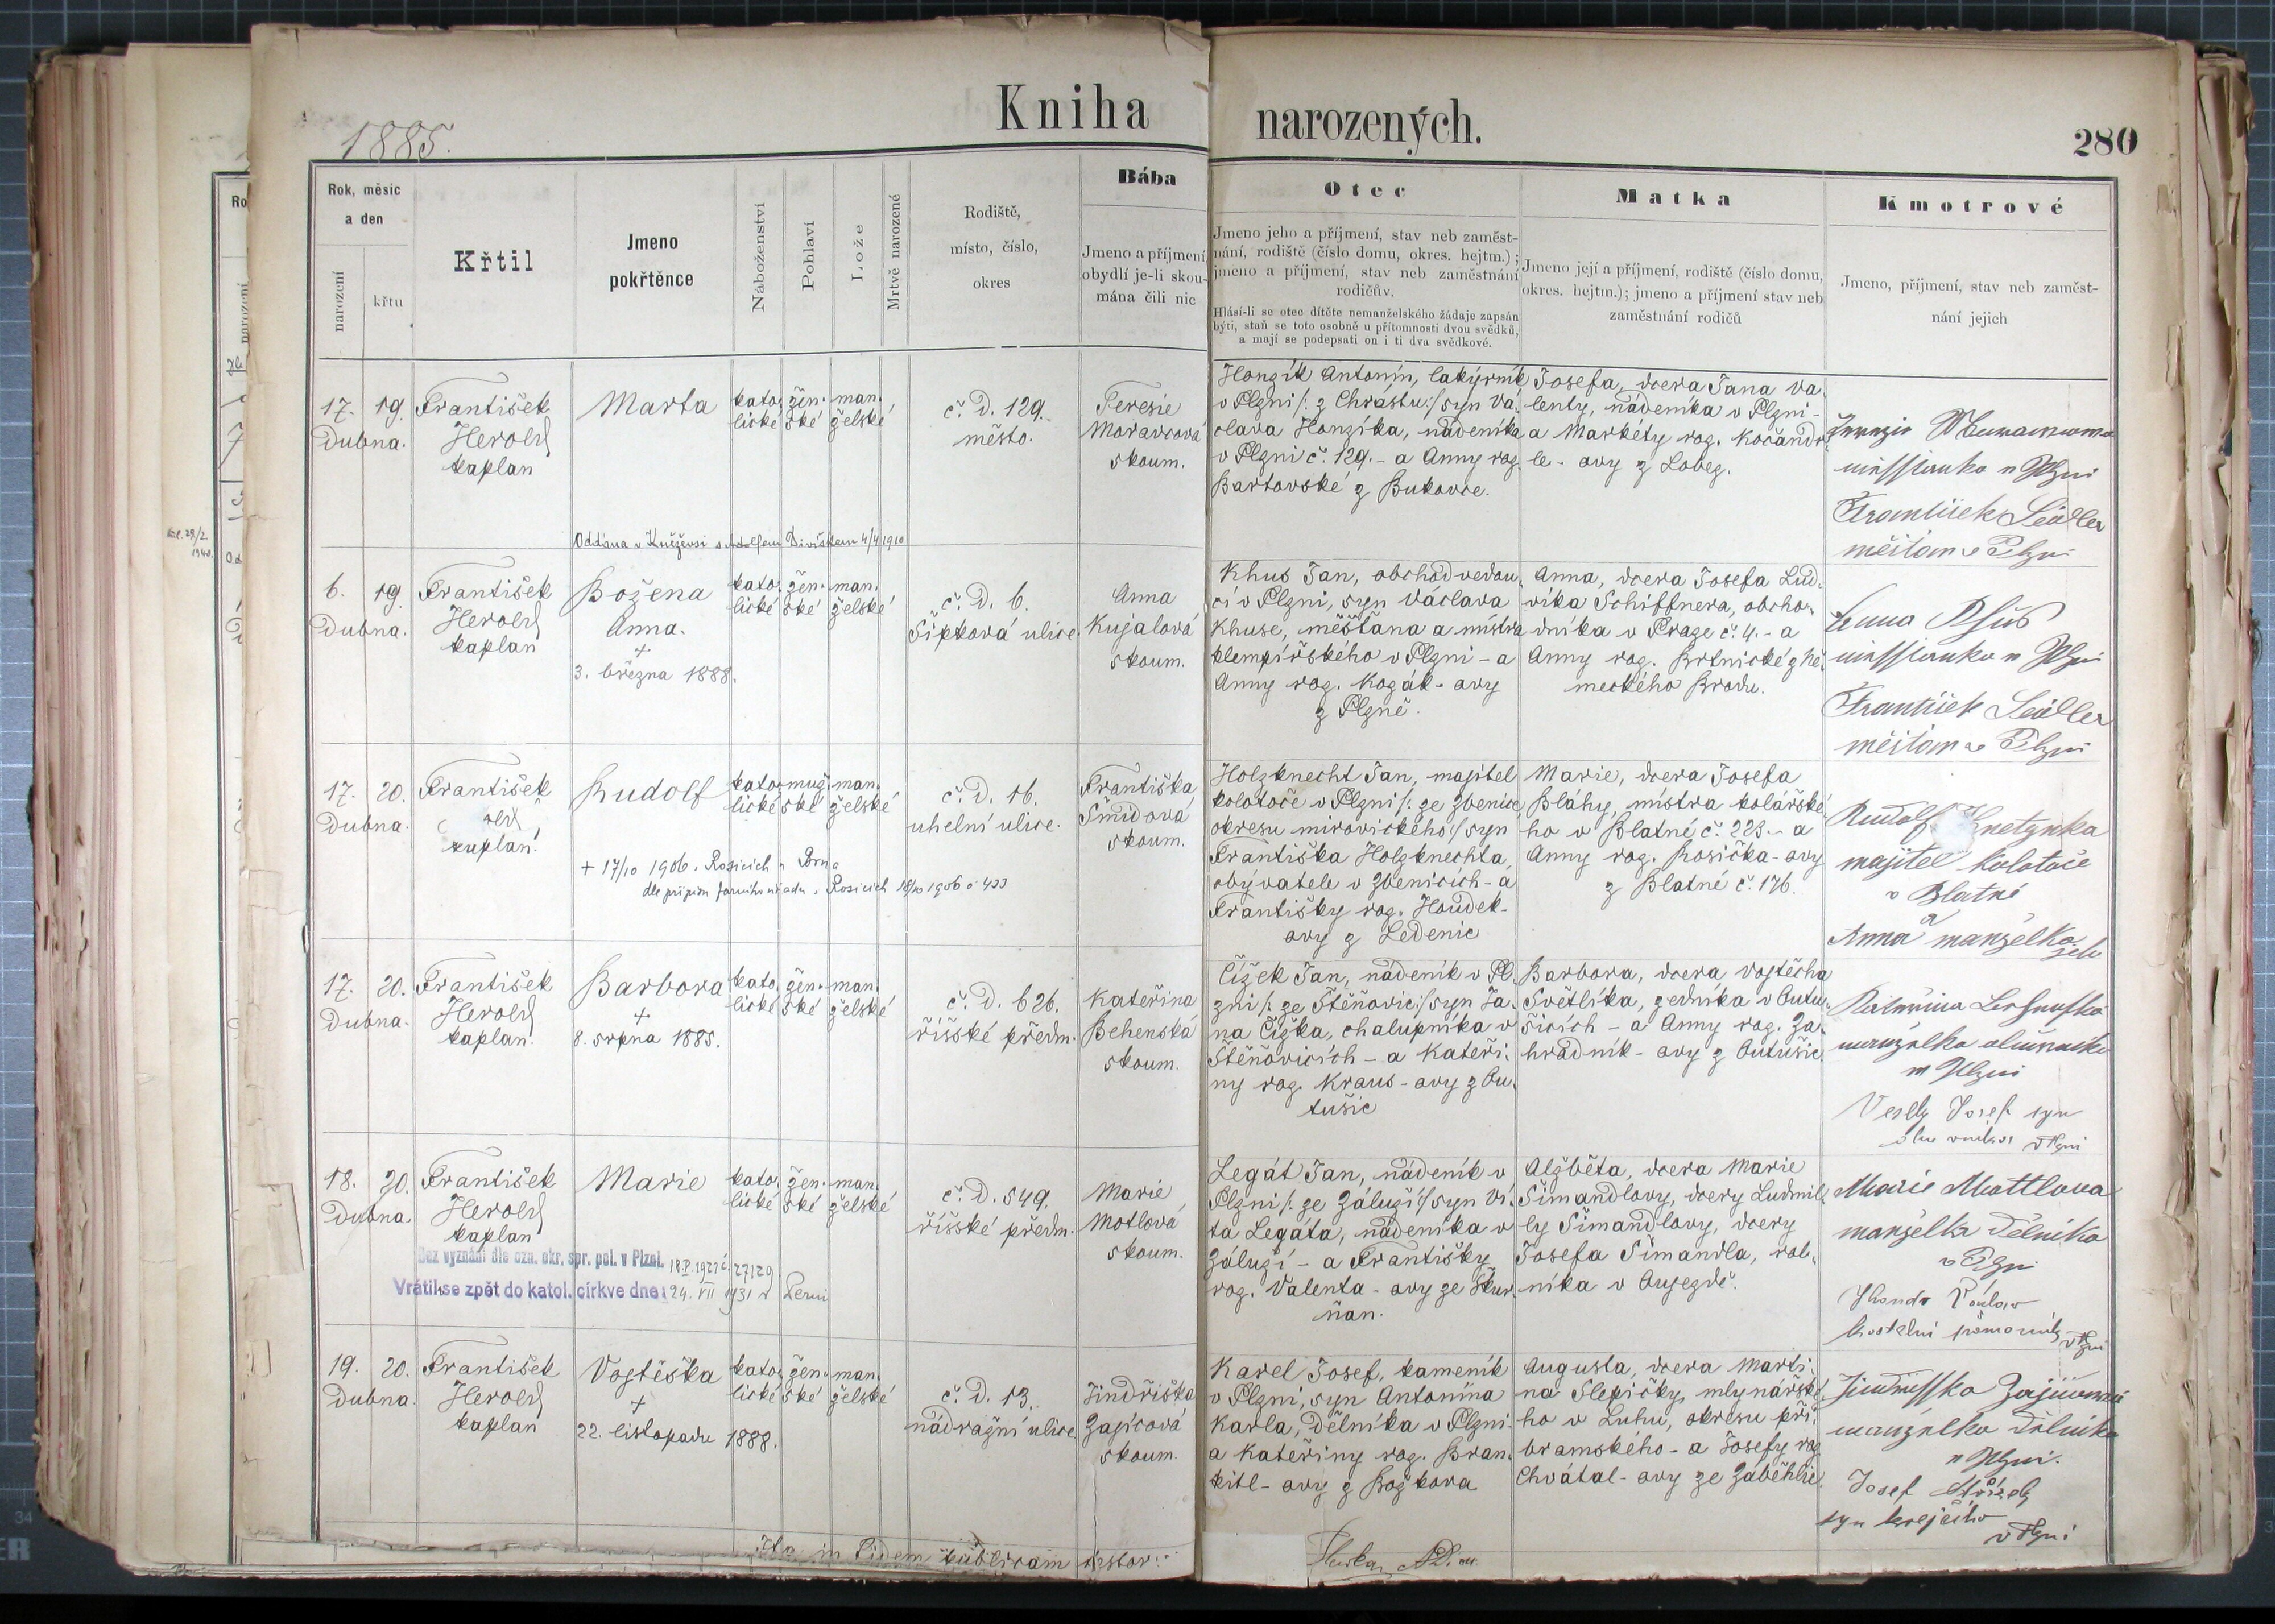 1885.
Kniha narozených.
280
Rok, měsíc
a den
narození
křtu
Křtil
Jmeno
pokřtěnce
Náboženství
Pohlaví
Lože
Mrtvě narozené
Rodiště,
místo, číslo,
okres
Bába
Jmeno a příjmení,
obydlí je-li skou-
mána čili nic
Otec
Jmeno jeho a příjmení, stav neb zaměst-
nání, rodiště (číslo domu, okres. hejtm.);
jmeno a příjmení, stav neb zaměstnání
rodičův.
Hlásí-li se otec dítěte nemanželského žádaje zapsán
býti, staň se toto osobně u přítomnosti dvou svědků,
a mají se podepsati on i ti dva svědkové.
Matka
Jmeno její a příjmení, rodiště (číslo domu,
okres. hejtm.); jmeno a příjmení stav neb
zaměstnání rodičů
Kmotrové
Jmeno, příjmení, stav neb zaměst-
nání jejich
17. 19.
Dubna.
František
Herold
kaplan
Marta
kato-
lické
žen-
ské
man-
želské
č. D. 129.
město.
Teresie
Moravcová
skoum.
Honzík Antonín, lakýrník
v Plzni /: z Chrástu:/ syn Vá-
clava Honzíka, nádeníka
v Plzni č. 129. - a Anny roz.
Bartovské z Bukovce.
Josefa, dcera Jana Va-
lenty, nádeníka v Plzni -
a Markéty roz. Kočandr-
le - ovy z Lobez.
František Seidler
měšťan v Plzni
Oddána v Kněževsi s Adolfem Divíškem 4/4 1910
6. 19.
Dubna.
František
Herold
kaplan
Božena
Anna.
+
3. března 1888.
kato-
lické
žen-
ské
man-
želské
č. D. 6.
Sirková ulice
Anna
Kuzalová
skoum.
Khus Jan, obchodvedou-
cí v Plzni, syn Václava
Khuse, měšťana a mistra
klempířského v Plzni - a
Anny roz. Kozák - ovy
z Plzně.
Anna, dcera Josefa Lud-
víka Schiffnera, obcho-
dníka v Praze č. 4. - a
Anny roz. Brtnické z Ně-
meckého Brodu.
František Seidler
měšťan v Plzni
17. 20.
Dubna.
František
kaplan.
Rudolf
kato-
lické
muž-
ské
man-
želské
č. D. 16.
uhelní ulice.
Františka
Šmidová
skoum.
+ 17/10 1906 v Rosicích u Brna
dle přípisu farního úřadu v Rosicích 18/10 1906 č 433
Holzknecht Jan, majitel
kolotoče v Plzni /: ze Zbenice,
okresu mirovického:/ syn
Františka Holzknechta,
obývatele v Zbenicích - a
Františky roz. Houdek -
ovy z Ledenic
Marie, dcera Josefa
Bláhy, mistra kolářské-
ho v Blatné č. 223. - a
Anny roz. Rosička - ovy
z Blatné č. 176.
Rudolf Hnetynka
majitel kolotoče
v Blatné
a
Anna manželka
jeho
17. 20.
Dubna.
František
Herold
kaplan.
Barbora
+
8. srpna 1885.
kato-
lické
žen-
ské
man-
želské
č. D. 626.
říšské předm.
Kateřina
Behenská
skoum.
Čížek Jan, nádeník v Pl-
zni /: ze Štěňovic:/ syn Ja-
na Čížka, chalupníka v
Štěňovicích - a Kateři-
ny roz. Kraus - ovy z Ou-
tušic
Barbora, dcera Vojtěcha
Světlíka, zedníka v Outu-
šicích - a Anny roz. Za-
hradník - ovy z Outušic
Vesely Josef syn
v Plzni
18. 20.
Dubna.
František
Herold
kaplan
Marie
kato-
lické
žen-
ské
man-
želské
č. D. 549.
říšské předm.
Marie
Motlová
skoum.
Bez vyznání dle ozn. okr. spr. pol. v Plzni.
Vrátil se zpět do katol. církve dne: 24. VII 1931
Legát Jan, nádeník v
Plzni /: ze Záluží:/ syn Ví-
ta Legáta, nádeníka v
Záluží - a Františky
roz. Valenta - ovy ze Škur-
ňan.
Alžběta, dcera Marie
Šimandlovy, dcery Ludmil-
ly Šimandlovy, dcery
Josefa Šimandla, rol-
níka v Oujezdě.
Marie Mottlova
manželka dělníka
v Plzni
kostelní pomocník v Plzni
19. 20.
Dubna.
František
Herold
kaplan
Vojtěška
+
22. listopadu 1888.
kato-
lické
žen-
ské
man-
želské
č. D. 13.
nádražní ulice.
Jindřiška
Zajícová
skoum.
Karel Josef, kameník
v Plzni, syn Antonína
Karla, dělníka v Plzni-
a Kateřiny roz. Bran-
kitl - ovy z Božkova
Augusta, dcera Marti-
na Slepičky, mlynářské-
ho v Luhu, okresu pří-
bramského - a Josefy roz
Chvátal - ovy ze Záběhlic.
manželka dělníka
v Plzni.
Josef
syn krejčího
v Plzni
Ita in fidem publicam testor: